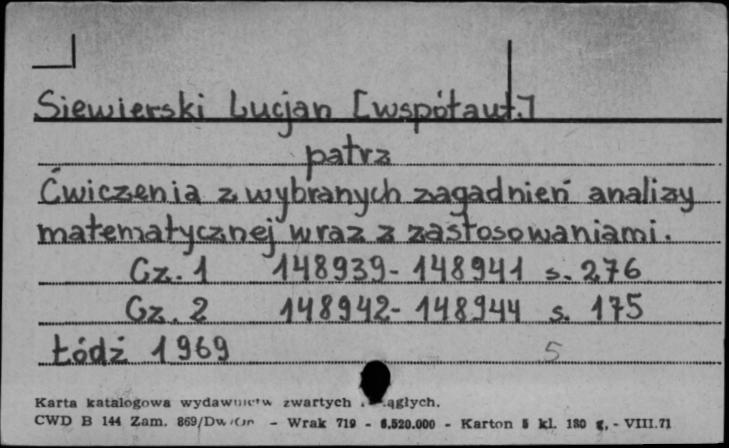 Siewierski Lucjan [współaut.]
patrz
Ćwiczenia z wybranych zagadnień analizy
matematycznej wraz z zastosowaniami.
Cz. 1 148939-148941 s. 276
Cz. 2 148942-148944 s. 175
Łódź 1969 5
Karta katalogowa wydawnictw zwartych i ciągłych.
CWD B 144 Zam. 869/Dw - Wrak 719 - 6.520.000 - Karton 5 kl. 180 g. - VIII.71